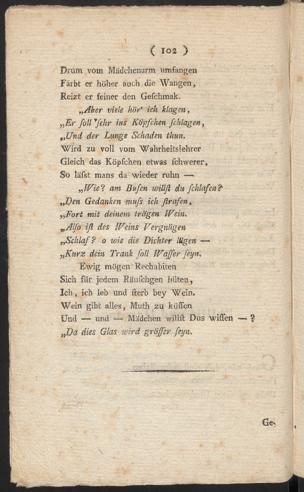 ( 102 )
Drum vom Mädchenarm umfangen
Färbt er höher auch die Wangen,
Reizt er feiner den Geſchmak.
„Aber viele hör' ich klagen,
„Er ſoll ſehr ins Köpfchen ſchlagen,
„Und der Lunge Schaden thun.
Wird zu voll vom Wahrheitslehrer
Gleich das Köpſchen etwas ſchwerer,
So läſst mans da wieder ruhn —
„Wie? am Buſen willſt du ſchlafen?
„Den Gedanken muſs ich ſtrafen,
„Fort mit deinem trägen Wein.
„Alſo iſt des Weins Vergnügen
„Schlaf? o wie die Dichter lügen —
„Kurz dein Trank ſoll Waſſer ſeyn.
Ewig mögen Rechabiten
Sich für jedem Räuſchgen hüten,
Ich, ich leb und ſterb bey Wein.
Wein gibt alles, Muth zu küſſen
Und — und — Mädchen willſt Dus wiſſen — ?
„Da dies Glas wird gröſſer ſeyn.
Ge-